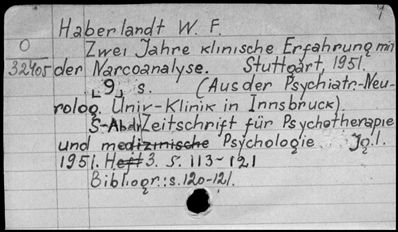 Haberlandt W. F.
O Zwei Jahre klinische Erfahrung mit
32405 der Narcoanalyse. Stuttgart, 1951.
[9] s. (Aus der Psychiatr.-Neu-
rolog. Univ-Klinik in Innsbruck).
S-Abdr Zeitschrift für Psychotherapie
und medizinische Psychologie Jg.1.
1951. Heft 3. S. 113-121
Bibliogr.: s. 120-121.